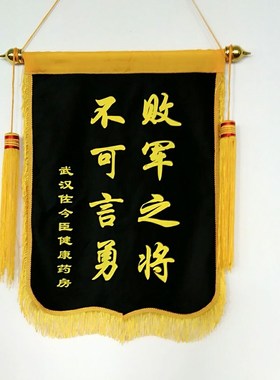 败军之将
不可言勇
武汉佐今臣健康药房